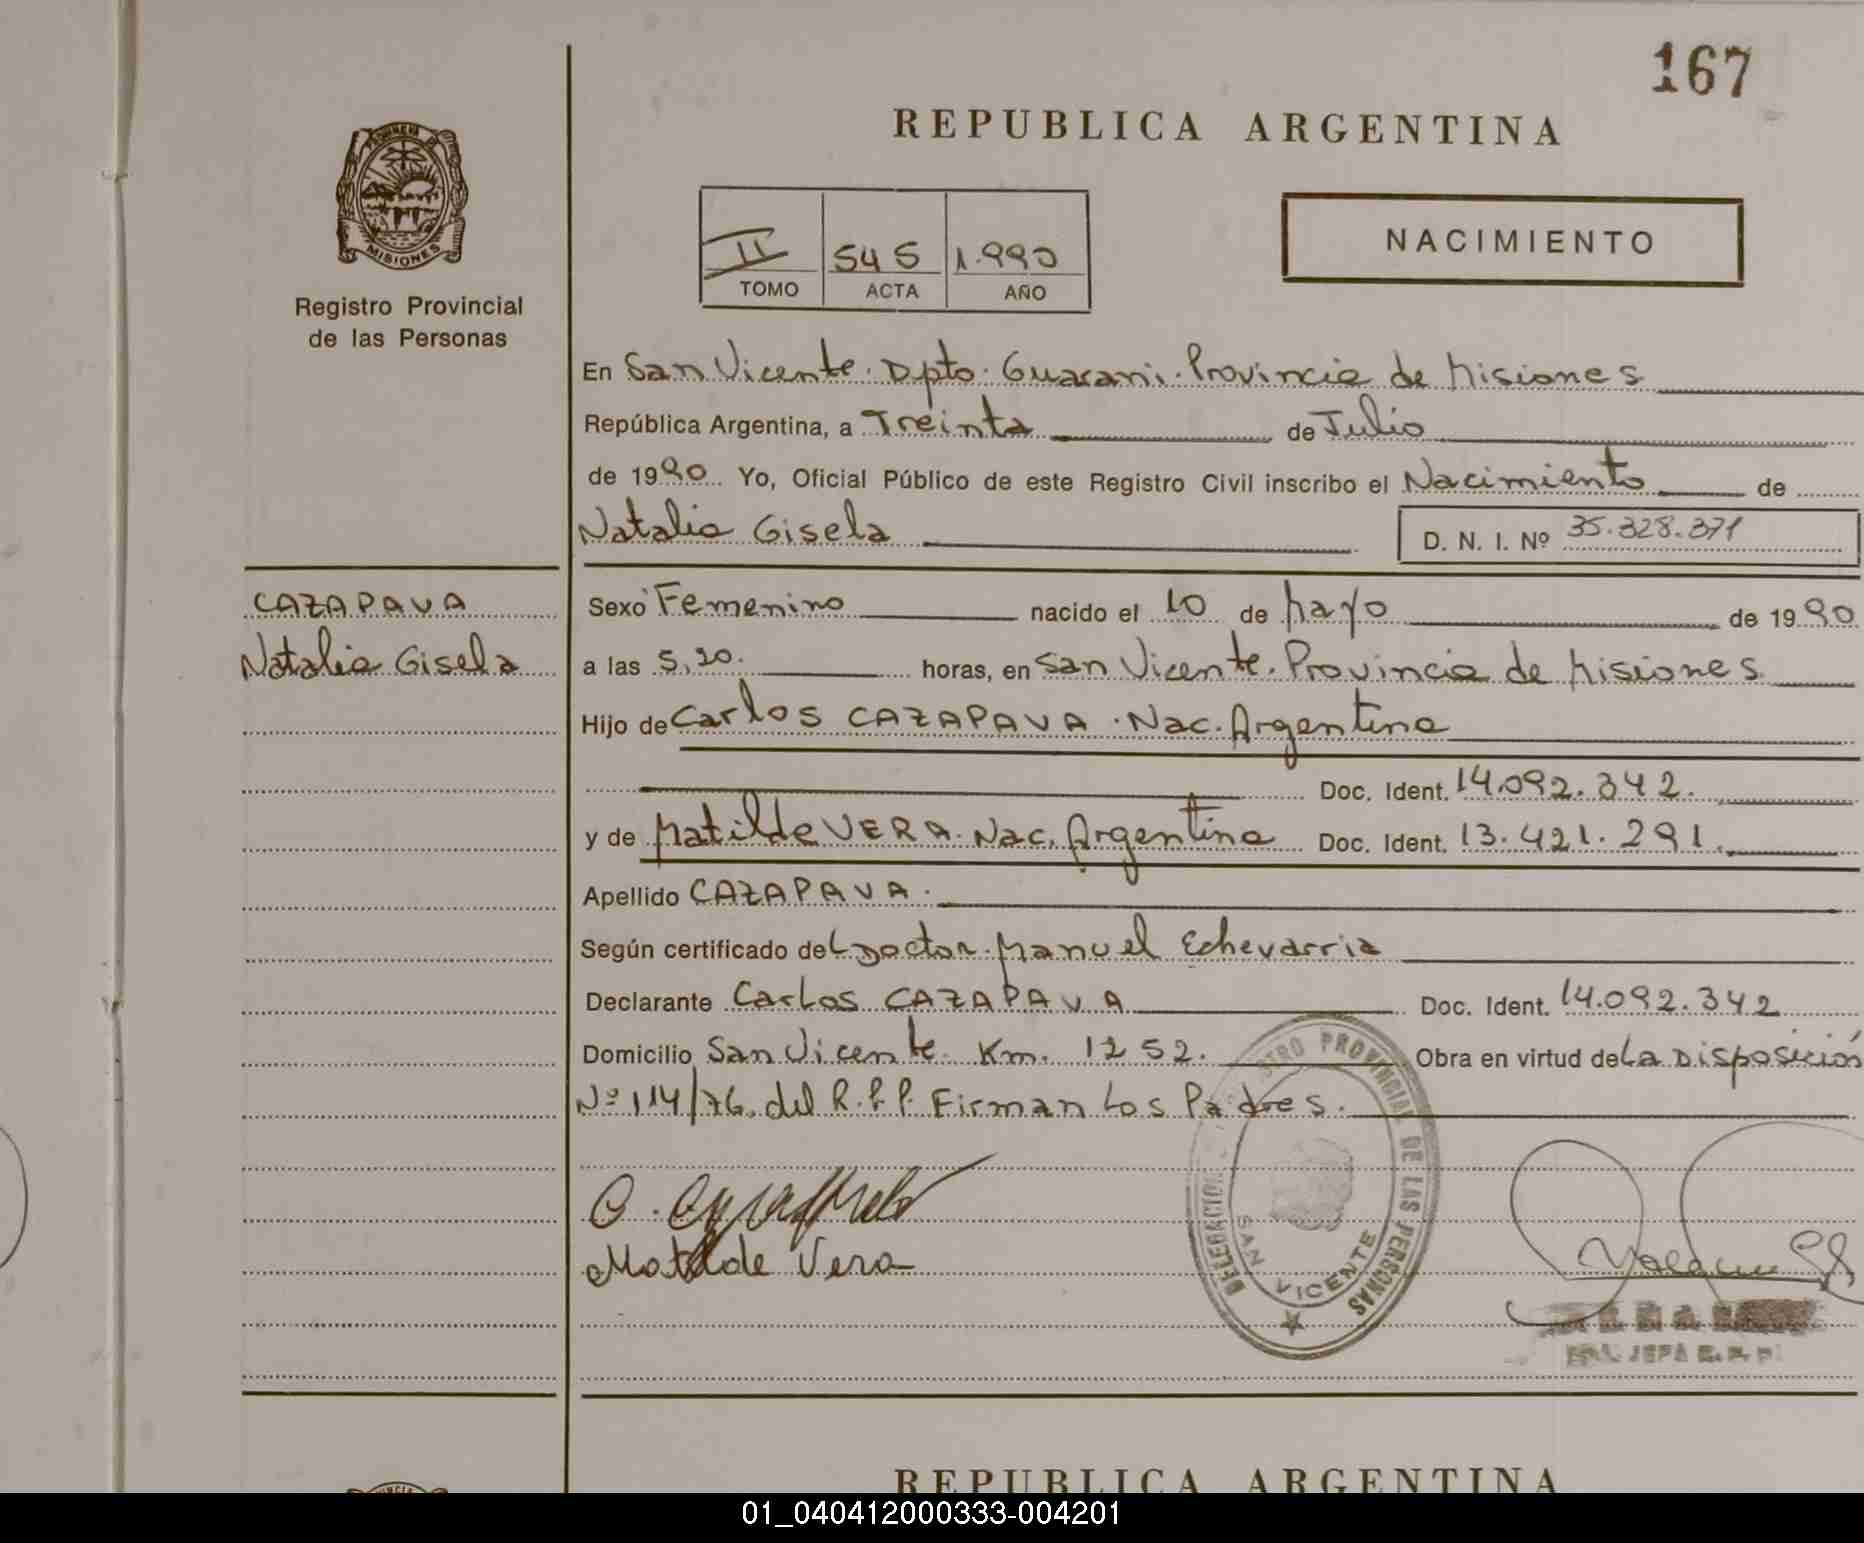 167
REPUBLICA ARGENTINA
PROVINCIA DE
MISIONES
Registro Provincial
de las Personas
II 545 1.990
TOMO ACTA AÑO
NACIMIENTO
En San Vicente. Dpto. Guarani. Provincia de Misiones
República Argentina, a Treinta de Julio
de 1990 Yo, Oficial Público de este Registro Civil inscribo el Nacimiento de
Natalia Gisela
D. N. I. Nº 35.328.371
CAZAPAVA
Natalia Gisela
Sexo Femenino nacido el 10 de Mayo de 1990
a las 5,20. horas, en San Vicente. Provincia de Misiones
Hijo de Carlos CAZAPAVA. Nac. Argentina
Doc. Ident. 14.092.342.
y de Matilde VERA. Nac. Argentina Doc. Ident. 13.421.291.
Apellido CAZAPAVA.
Según certificado del Doctor. Manuel Echevarria
Declarante Carlos CAZAPAVA Doc. Ident. 14.092.342
Domicilio San Vicente. Km. 1252. Obra en virtud de La Disposición
Nº 114/76. del R.P.P. Firman Los Padres.
DELEGACION REGISTRO PROVINCIAL DE LAS PERSONAS
SAN VICENTE
Matilde Vera
JEFA R. P. P.
REPUBLICA ARGENTINA
01_040412000333-004201